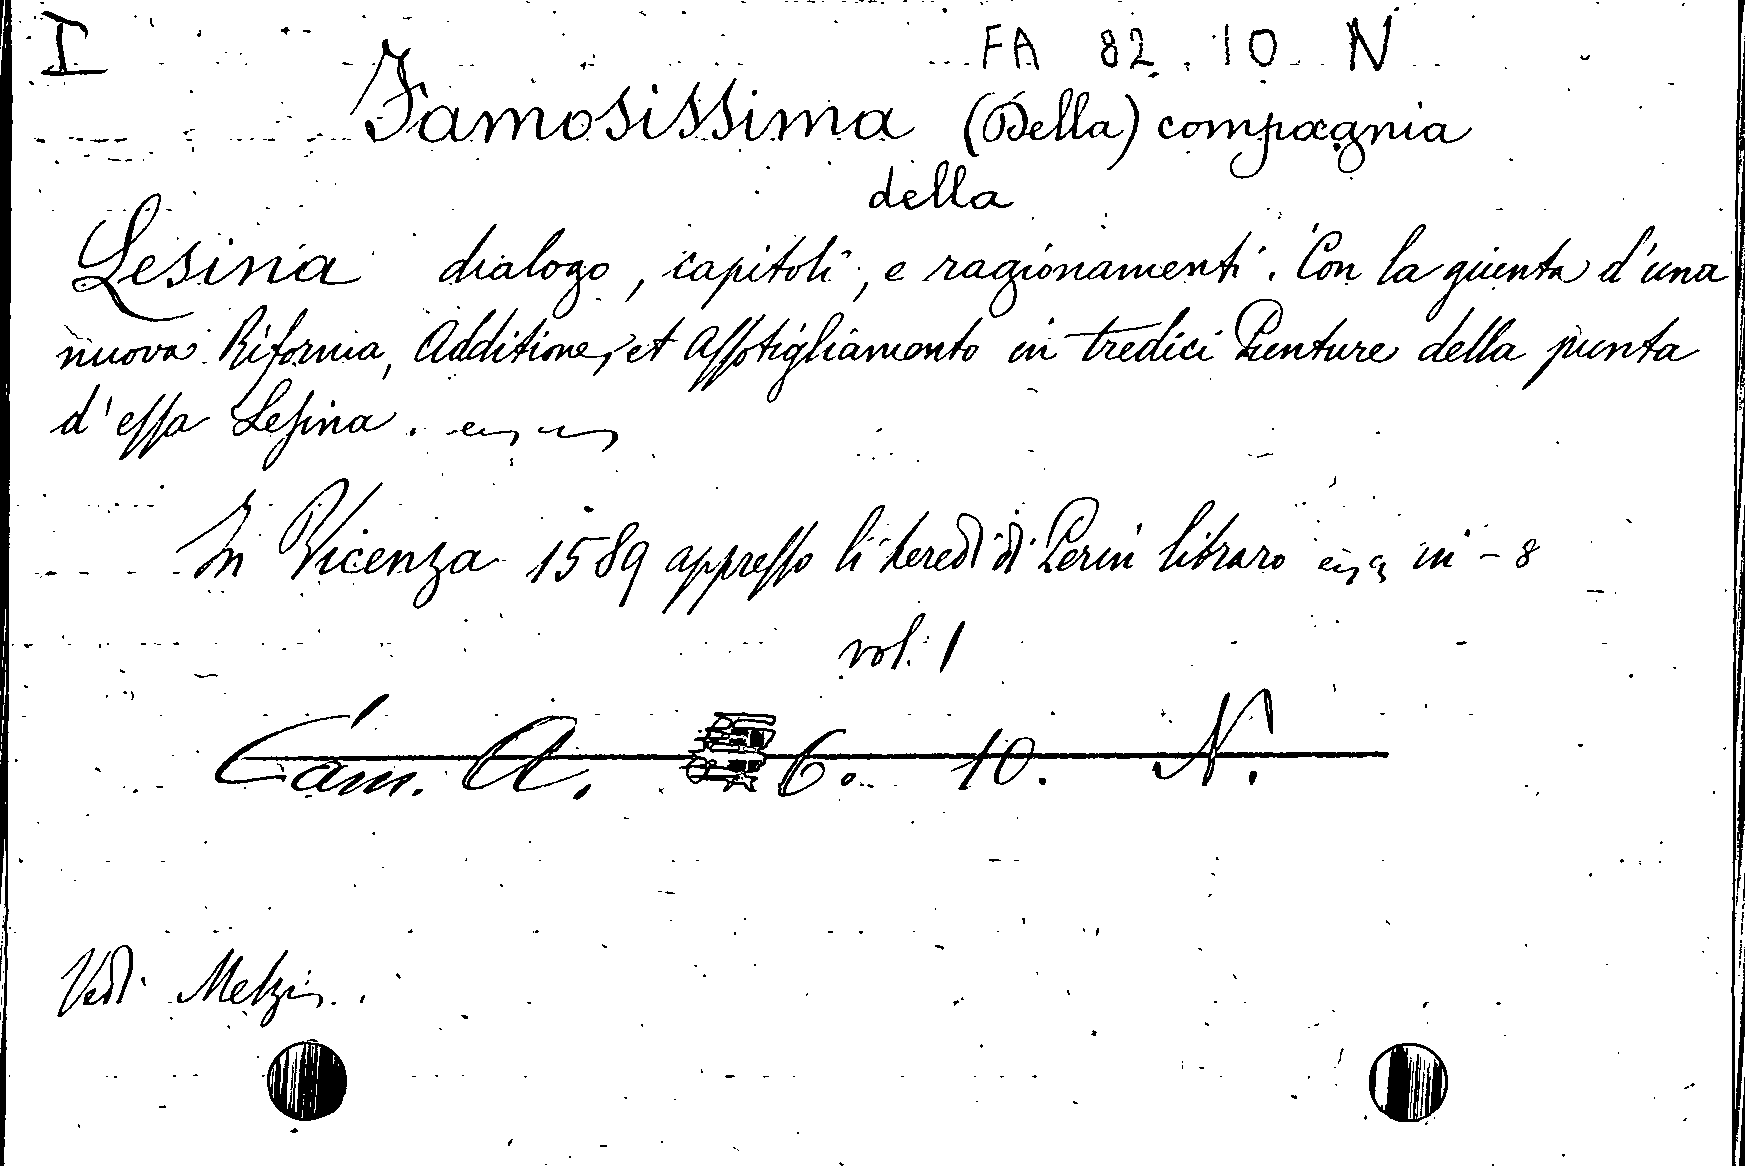 I
FA 82. 10 N
Famosissima (Della) compagnia
della
Lesina dialogo, capitoli, e ragionamenti. Con la giunta d'una
nuova Riforma, Additione, et Assotigliamento in tredici Punture della punta
d'essa Lesina.
In Vicenza 1589 appresso li heredi di Perin libraro in-8
vol. 1
Cam. A. 6. 10. N.
Vedi Melzi